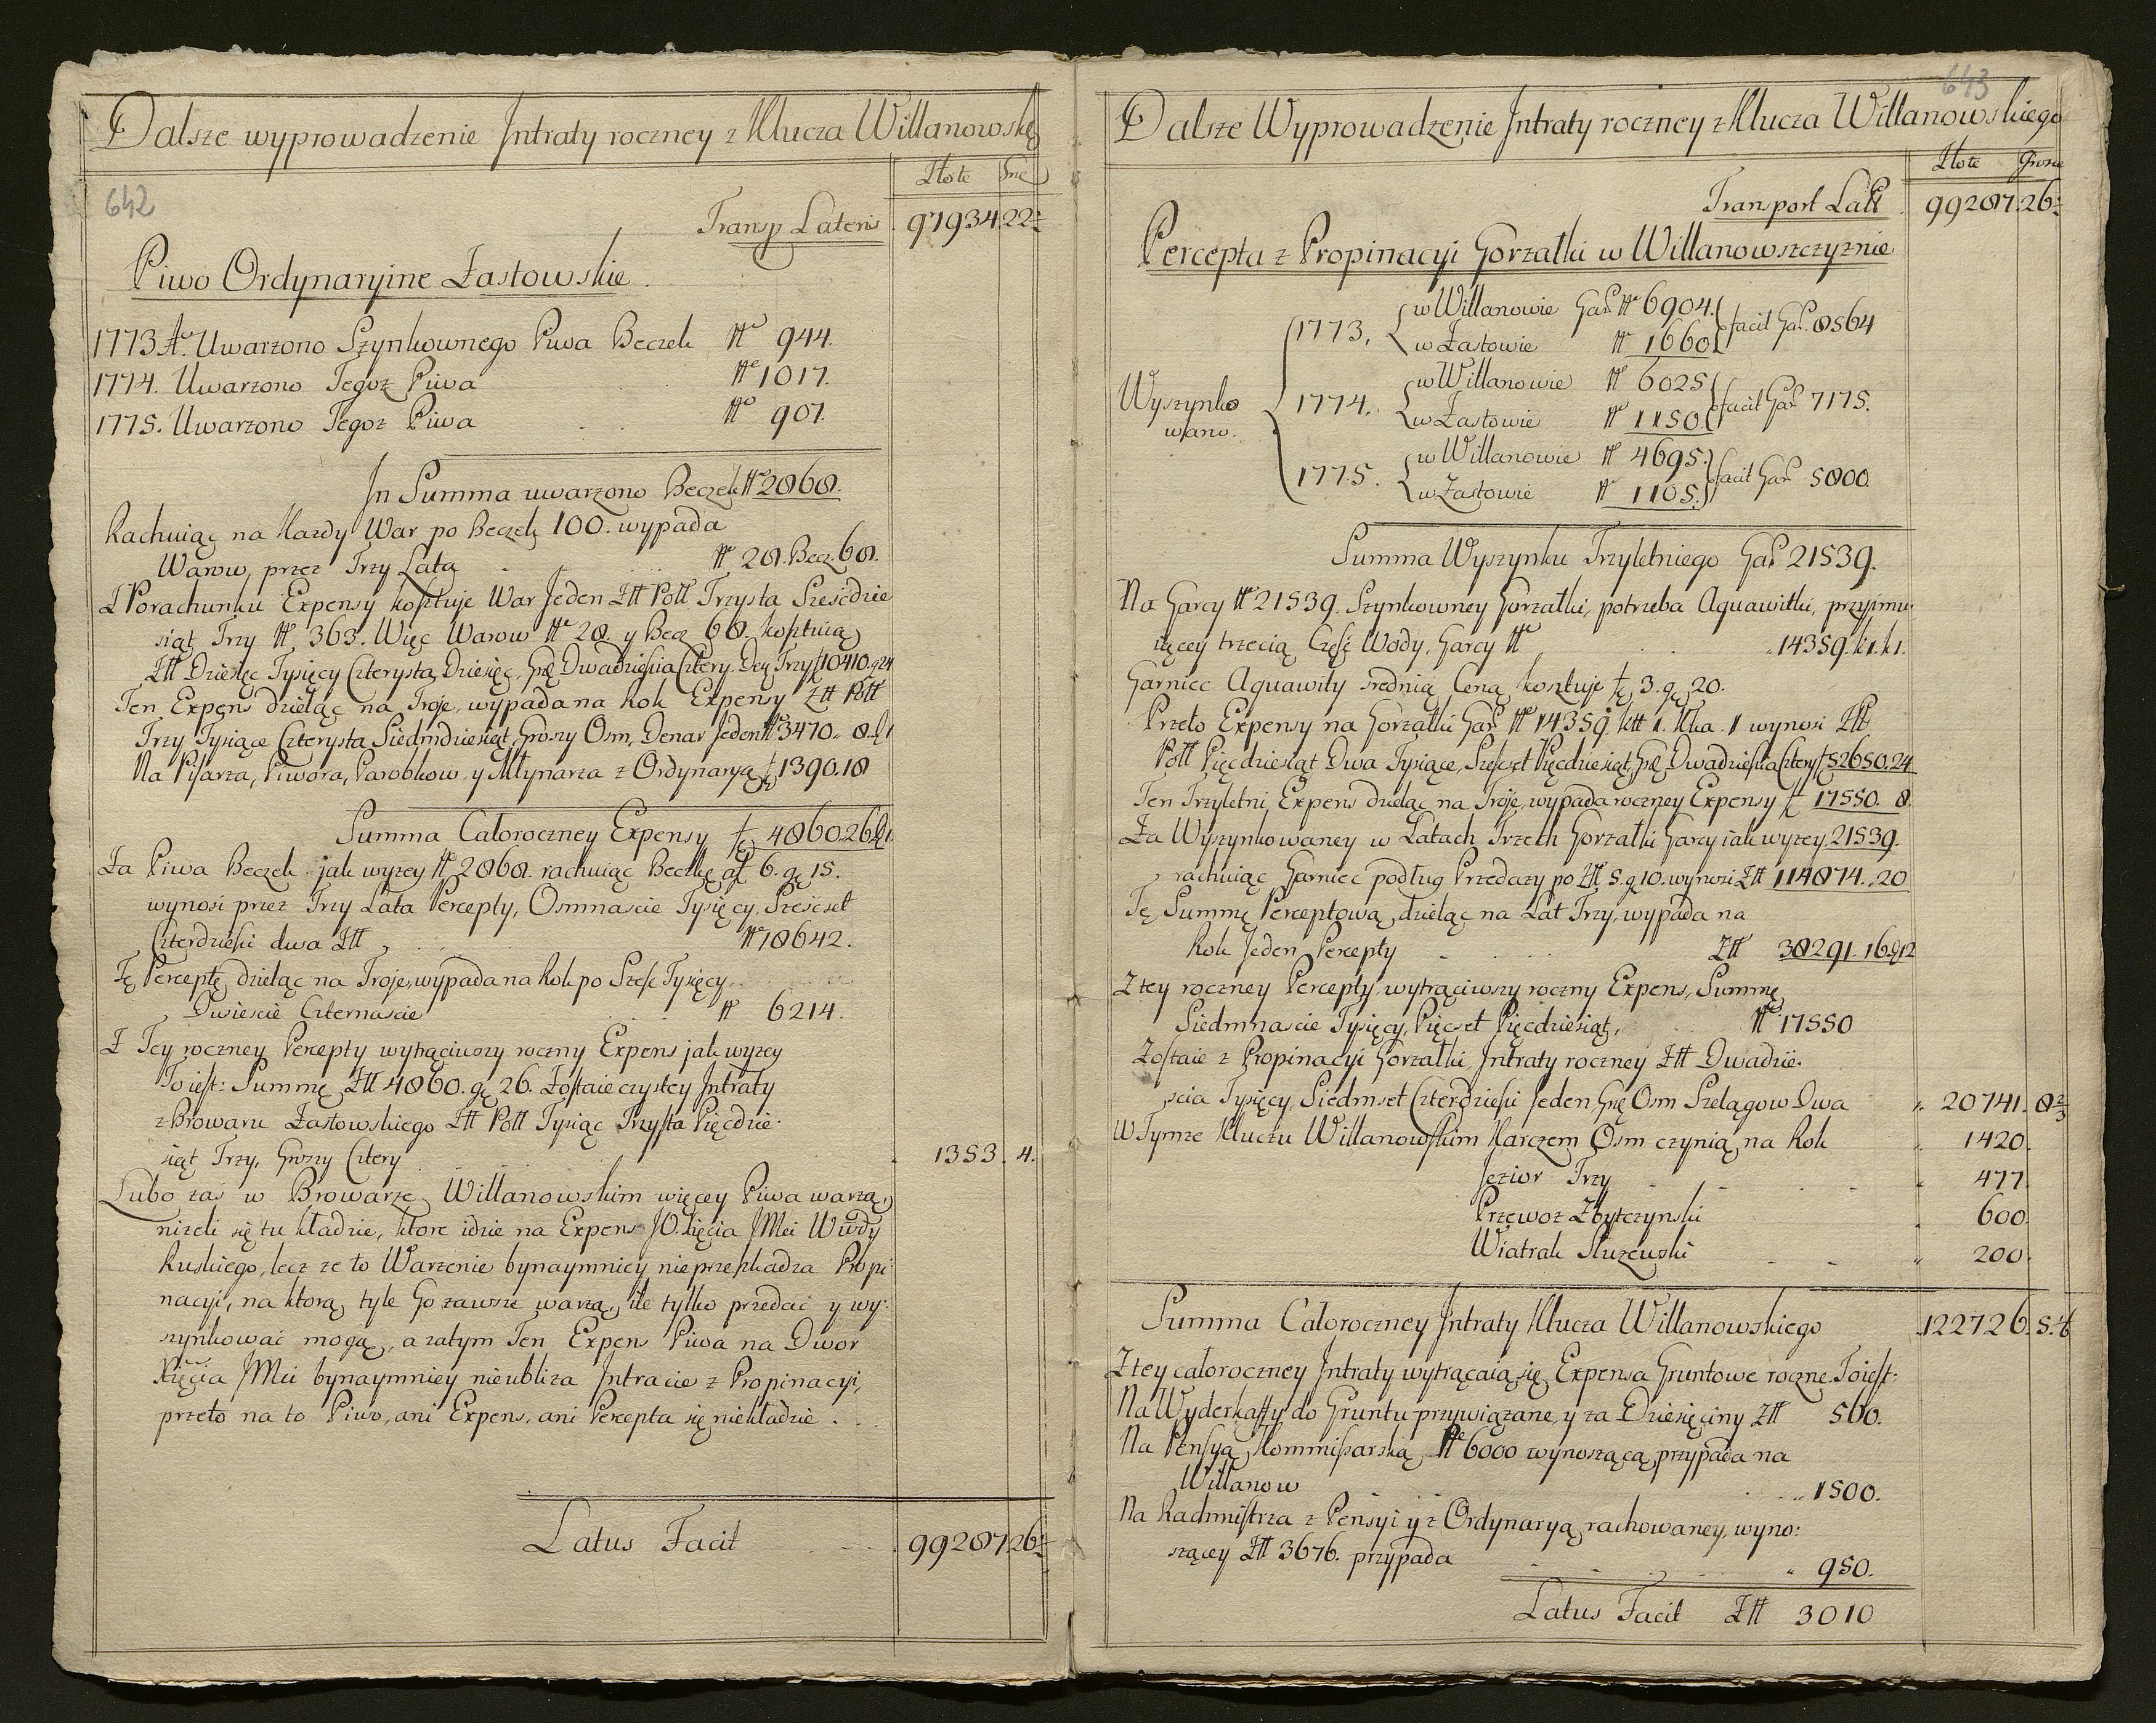 Dalsze wyprowadzenie Intraty roczney z Klucza Willanowskę
642
Złote Grṣe
Transp Lateris 97934. 22
Piwo Ordynaryjne Zastowskie.
1773 Aº. Uwarzono Szynkownego Piwa Beczek Nº 944.
1774. Uwarzono Tegoz Piwa Nº 1017.
1775. Uwarzono Tegoz Piwa Nº 907.
In Summa uwarzono Beczek Nº 2868.
Rachuiąc na Kazdy War po Beczek 100. wypada
Warow, przez Trzy Lata Nº 28. Becz 68.
Z Porachunku Expensy kosztuje War Jeden Złł Poll Trzysta Sześćdzie
siąt Trzy Nº 363. Więc Warow Nº 28. y Becz 68. kosztuią
Złł Dziesięc Tysięcy Czterysta Dziesięc, Grę Dwadziescia Cztery. Den Trzy 10410. g 24
Ten Expens dzieląc na Troje, wypada na Rok Expensy Złł Poll
Trzy Tysiące Czterysta Siedmdziesiąt, Groszy Osm, Denar Jeden Nº 3470. 8. d 1
Na Pisarza, Piwora, Parobkow, y Młynarza z Ordynaryą 1390. 18
Summa Całoroczney Expensy 4860. 26. d 1.
Za Piwa Beczek jak wyzey Nº 2868. rachuiąc Beczkę a ƒ 6. g 15.
wynosi przez Trzy Lata Percepty, Osmnascie Tysięcy, Sześcset
Czterdziesci dwa Złł Nº 18642.
Tę Perceptę dzieląc na Troje, wypada na Rok po Szesc Tysięcy
Dwiescie Czternascie Nº 6214.
Z Tey roczney Percepty wytrąciwszy roczny Expens jak wyzey
To iest: Summę Złł 4860. g 26. Zostaie czystey Intraty
z Browaru Zastowskiego Złł Poll Tysiąc Trzysta Pięcdzie
siąt Trzy, Groszy Cztery 1353. 4.
Lubo zaś w Browarze Willanowskim więcey Piwa warzą,
nizeli się tu kładzie, ktore idzie na Expens JO. Xięcia JMci Wwdy
Ruskiego, lecz ze to Warzenie bynaymniey nieprzeszkadza Propi
nacyi, na ktorą tyle Go zawsze warzą, ile tylko przedać y wy
szynkować mogą, a zatym Ten Expen Piwa na Dwor
Xięcia JMci bynaymniey nieubliza Intracie z Propinacyi,
przeto na to Piwo, ani Expens, ani Percepta się niekładzie.
Latus Facit 99287. 26
643
Dalsze Wyprowadzenie Intraty roczney z Klucza Willanowskiego
Złote Grosze
Transport Latt 99287. 26
Percepta z Propinacyi Gorzałki w Willanowszczyznie
1773, w Willanowie Gar Nº 6904.
w Zastowie Nº 1660 facit Gar. 8564
Wyszynko
wano.
1774. w Willanowie Nº 6025
w Zastowie Nº 1150. facit Gar 7175.
1775. w Willanowie Nº 4695.
w Zastowie Nº 1105. facit Gar 5800.
Summa Wyszynku Trzyletniego Gar 21539.
Na Garcy Nº 21539. Szynkowney Gorzałki, potrzeba Aquawitki, przyimu
iącey trzecią Częsc Wody, Garcy Nº 14359. k 1. k 1.
Garniec Aquawity srednią Ceną kosztuje 3. g 20.
Przeto Expensy na Gorzałki Gar Nº 14359. ktt 1. Kka. 1 wynosi Złł
Poll Pięcdziesiąt Dwa Tysiące, Szescset Pięcdziesiąt, Grę Dwadziescia Cztery 52650. 24
Ten Trzyletni Expens dzieląc na Troje, wypada roczney Expensy 17550. 8
Za Wyszynkowaney w Latach Trzech Gorzałki Garcy iak wyzey 21539.
rachuiąc Garniec podług Przedazy po Złł 5. g 10. wynosi Złł 114874. 20
Tę Summę Perceptową, dzieląc na Lat Trzy, wypada na
Rok Jeden Percepty Złł 38291. 16. d 12
Z tey roczney Percepty, wytrąciwszy roczny Expens, Summę
Siedmnascie Tysięcy, Pięcset Pięcdziesiąt, Nº 17550
Zostaie z Propinacyi Gorzałki, Intraty roczney Złł Dwadzie
scia Tysięcy, Siedmset Czterdziesci Jeden, Grę Osm Szelągow Dwa 20741. 8 2/3
W Tymze Kluczu Willanowskim Karczem Osm czynią na Rok 1420.
Jezior Trzy 477
Przewoz Zbytczynski 600
Wiatrak Słuzewski 200.
Summa Całoroczney Intraty Klucza Willanowskiego 122726. 5.
Z tey całoroczney Intraty wytrącaią się Expensa Gruntowe roczne. To iest:
Na Wyderkaffy do Gruntu przywiązane, y za Dziesięciny Złł 560.
Na Pensyą Kommissarską Nº 6000 wynoszącą, przypada na
Willanow 1500.
Na Radmistrza z Pensyi y z Ordynaryą rachowaney, wyno:
szącey Złł 3676. przypada 950.
Latus Facit Złł 3010